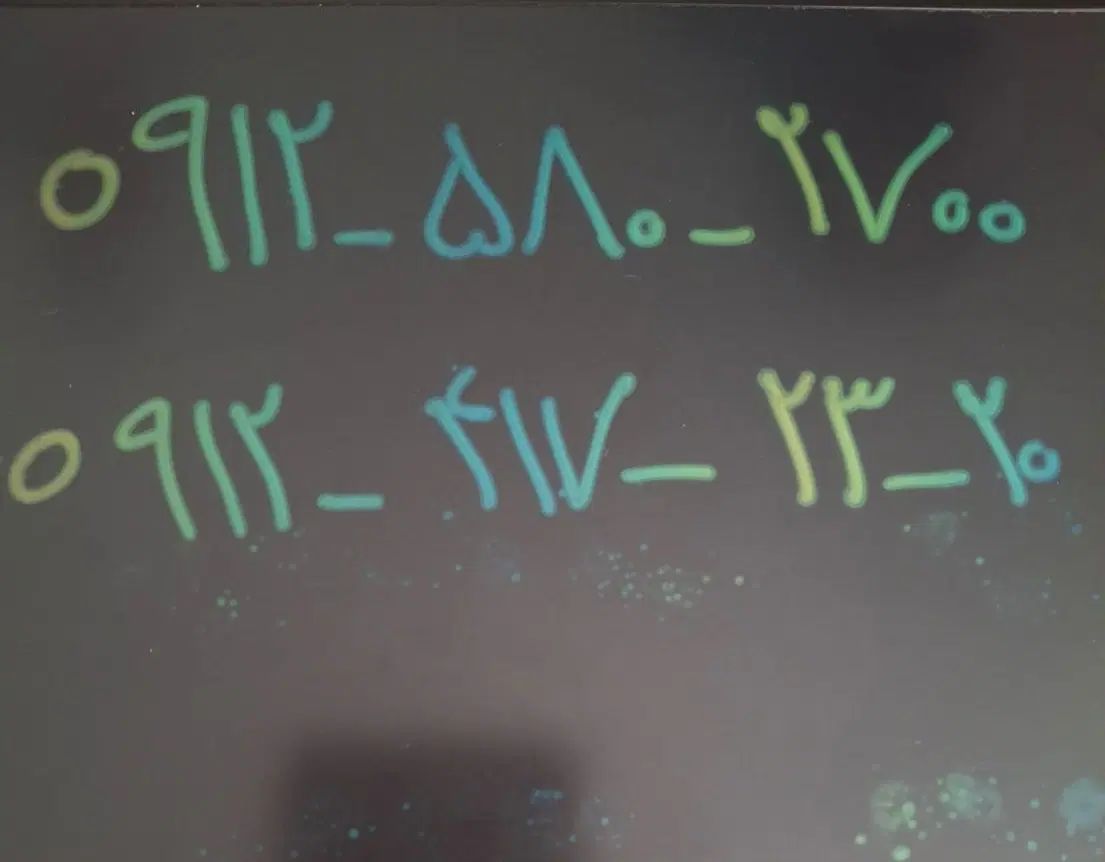 ۰۹۱۲_۵۸۰_۲۷۰۰
۰۹۱۲_۴۱۷_۲۳_۲۰